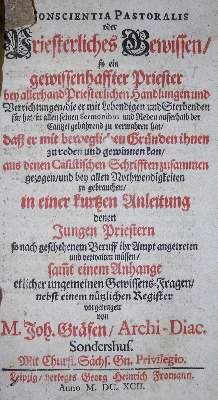 CONSCIENTIA PASTORALIS
oder
Priesterliches Gewissen/
so ein
gewissenhaffter Priester
bey allerhand Priesterlichen Handlungen und
Verrichtungen/die er mit Lebendigen und Sterbenden
für hat/ in allen seinen Sermonibus und Reden ausserhalb der
Cantzel gebührend zu verwahren hat/
daß er mit beweglichen Gründen ihnen
zu reden und gewinnen kan/
aus denen Casistischen Schrifften zusammen
gezogen/ und bey allen Nothwendigkeiten
zu gebrauchen/
in einer kurtzen Anleitung
denen
Jungen Priestern
so nach geschehenem Beruff ihr Ampt angetreten
und verwalten müssen/
samt einem Anhange
etlicher ungemeinen Gewissens-Fragen/
nebst einem nützlichen Register
vorgetragen
von
M. Joh. Gräfen/ Archi-Diac.
Sondershus.
Mit Churfl. Sächs. Gn. Privilegio.
Leipzig/ verlegts Georg Heinrich Fromann.
Anno M. DC. XCII.